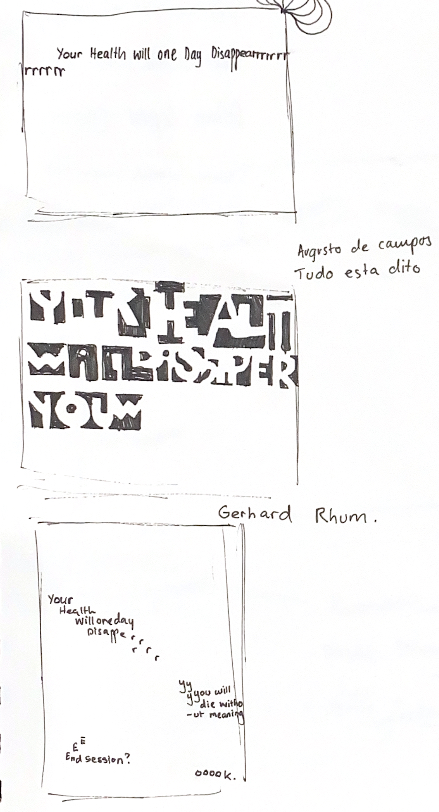 Your Health will one Day Disappearrrrrr
rrrrr
Augusto de campos
Tudo esta dito
YOUR HEALT
Gerhard Rhum.
Your
Health
will one day
Disappe r r
r r r
yy
yyou will
die witho
-ut meaning
E E
End session?
ooook.